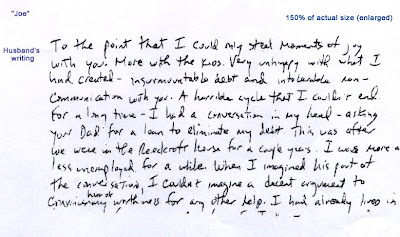 "Joe"
150% of actual size (enlarged)
Husband's
writing
To the point that I could only steal moments of joy
with you. More with the kids. Very unhappy with what I
had created - insurmountable debt and intolerable non-
communication with you. A horrible cycle that I couldn't end.
For a long time - I had a conversation in my head - asking
your Dad for a loan to eliminate my debt. This was after
we were in the Reedcroft house for a couple years. I was more or
less unemployed for a while. When I imagined his part of
the conversation, I couldn't imagine a decent argument to
my worthiness for any other help. I had already lived in